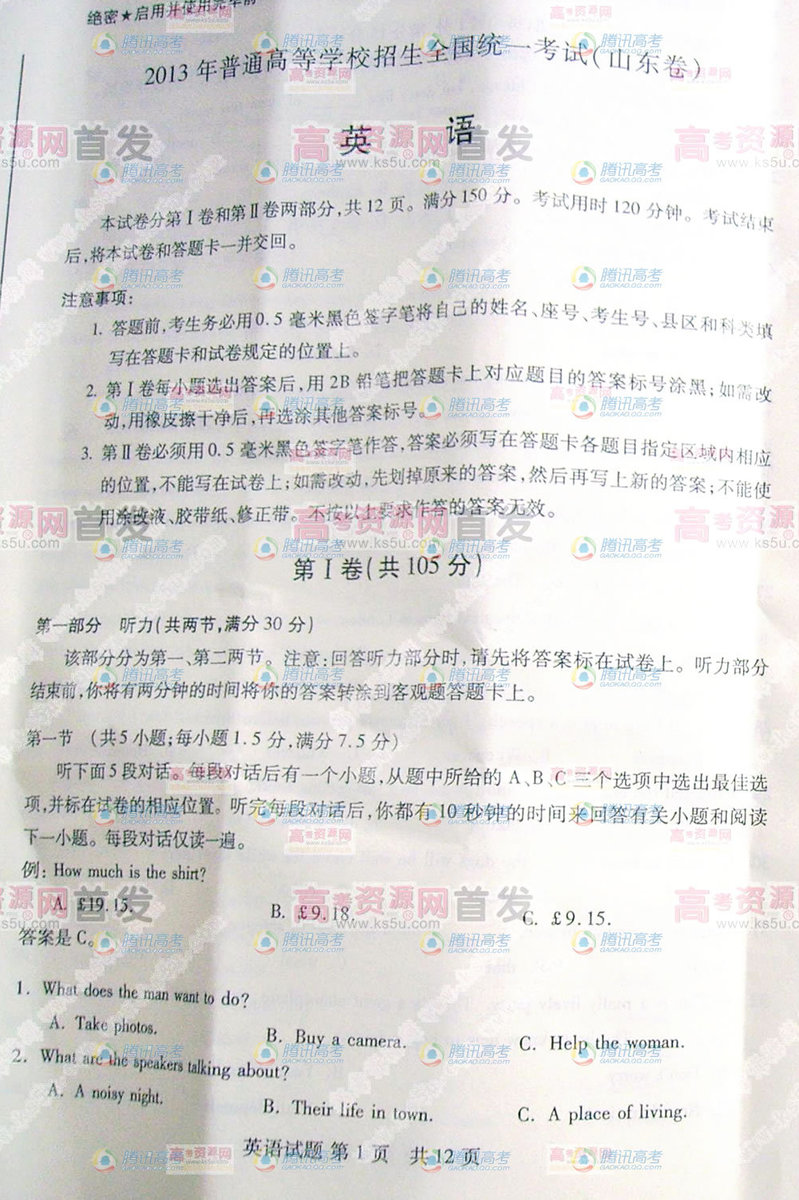 绝密★启用并使用完毕前
2013年普通高等学校招生全国统一考试(山东卷)
英 语
本试卷分第Ⅰ卷和第Ⅱ卷两部分,共12页。满分150分。考试用时120分钟。考试结束
后,将本试卷和答题卡一并交回。
注意事项:
1. 答题前,考生务必用0.5毫米黑色签字笔将自己的姓名、座号、考生号、县区和科类填
写在答题卡和试卷规定的位置上。
2. 第Ⅰ卷每小题选出答案后,用2B铅笔把答题卡上对应题目的答案标号涂黑;如需改
动,用橡皮擦干净后,再选涂其他答案标号。
3. 第Ⅱ卷必须用0.5毫米黑色签字笔作答,答案必须写在答题卡各题目指定区域内相应
的位置,不能写在试卷上;如需改动,先划掉原来的答案,然后再写上新的答案;不能使
用涂改液、胶带纸、修正带。不按以上要求作答的答案无效。
第Ⅰ卷(共105分)
第一部分 听力(共两节,满分30分)
该部分分为第一、第二两节。注意:回答听力部分时,请先将答案标在试卷上。听力部分
结束前,你将有两分钟的时间将你的答案转涂到客观题答题卡上。
第一节 (共5小题;每小题1.5分,满分7.5分)
听下面5段对话。每段对话后有一个小题,从题中所给的A、B、C三个选项中选出最佳选
项,并标在试卷的相应位置。听完每段对话后,你都有10秒钟的时间来回答有关小题和阅读
下一小题。每段对话仅读一遍。
例: How much is the shirt?
A. £19.15. B. £9.18. C. £9.15.
答案是C。
1. What does the man want to do?
A. Take photos. B. Buy a camera. C. Help the woman.
2. What are the speakers talking about?
A. A noisy night. B. Their life in town. C. A place of living.
英语试题 第1页 共12页
高考资源网首发
www.ks5u.com
腾讯高考
GAOKAO.QQ.COM